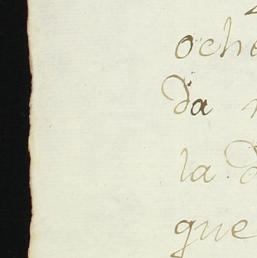 oche
da
la d
que